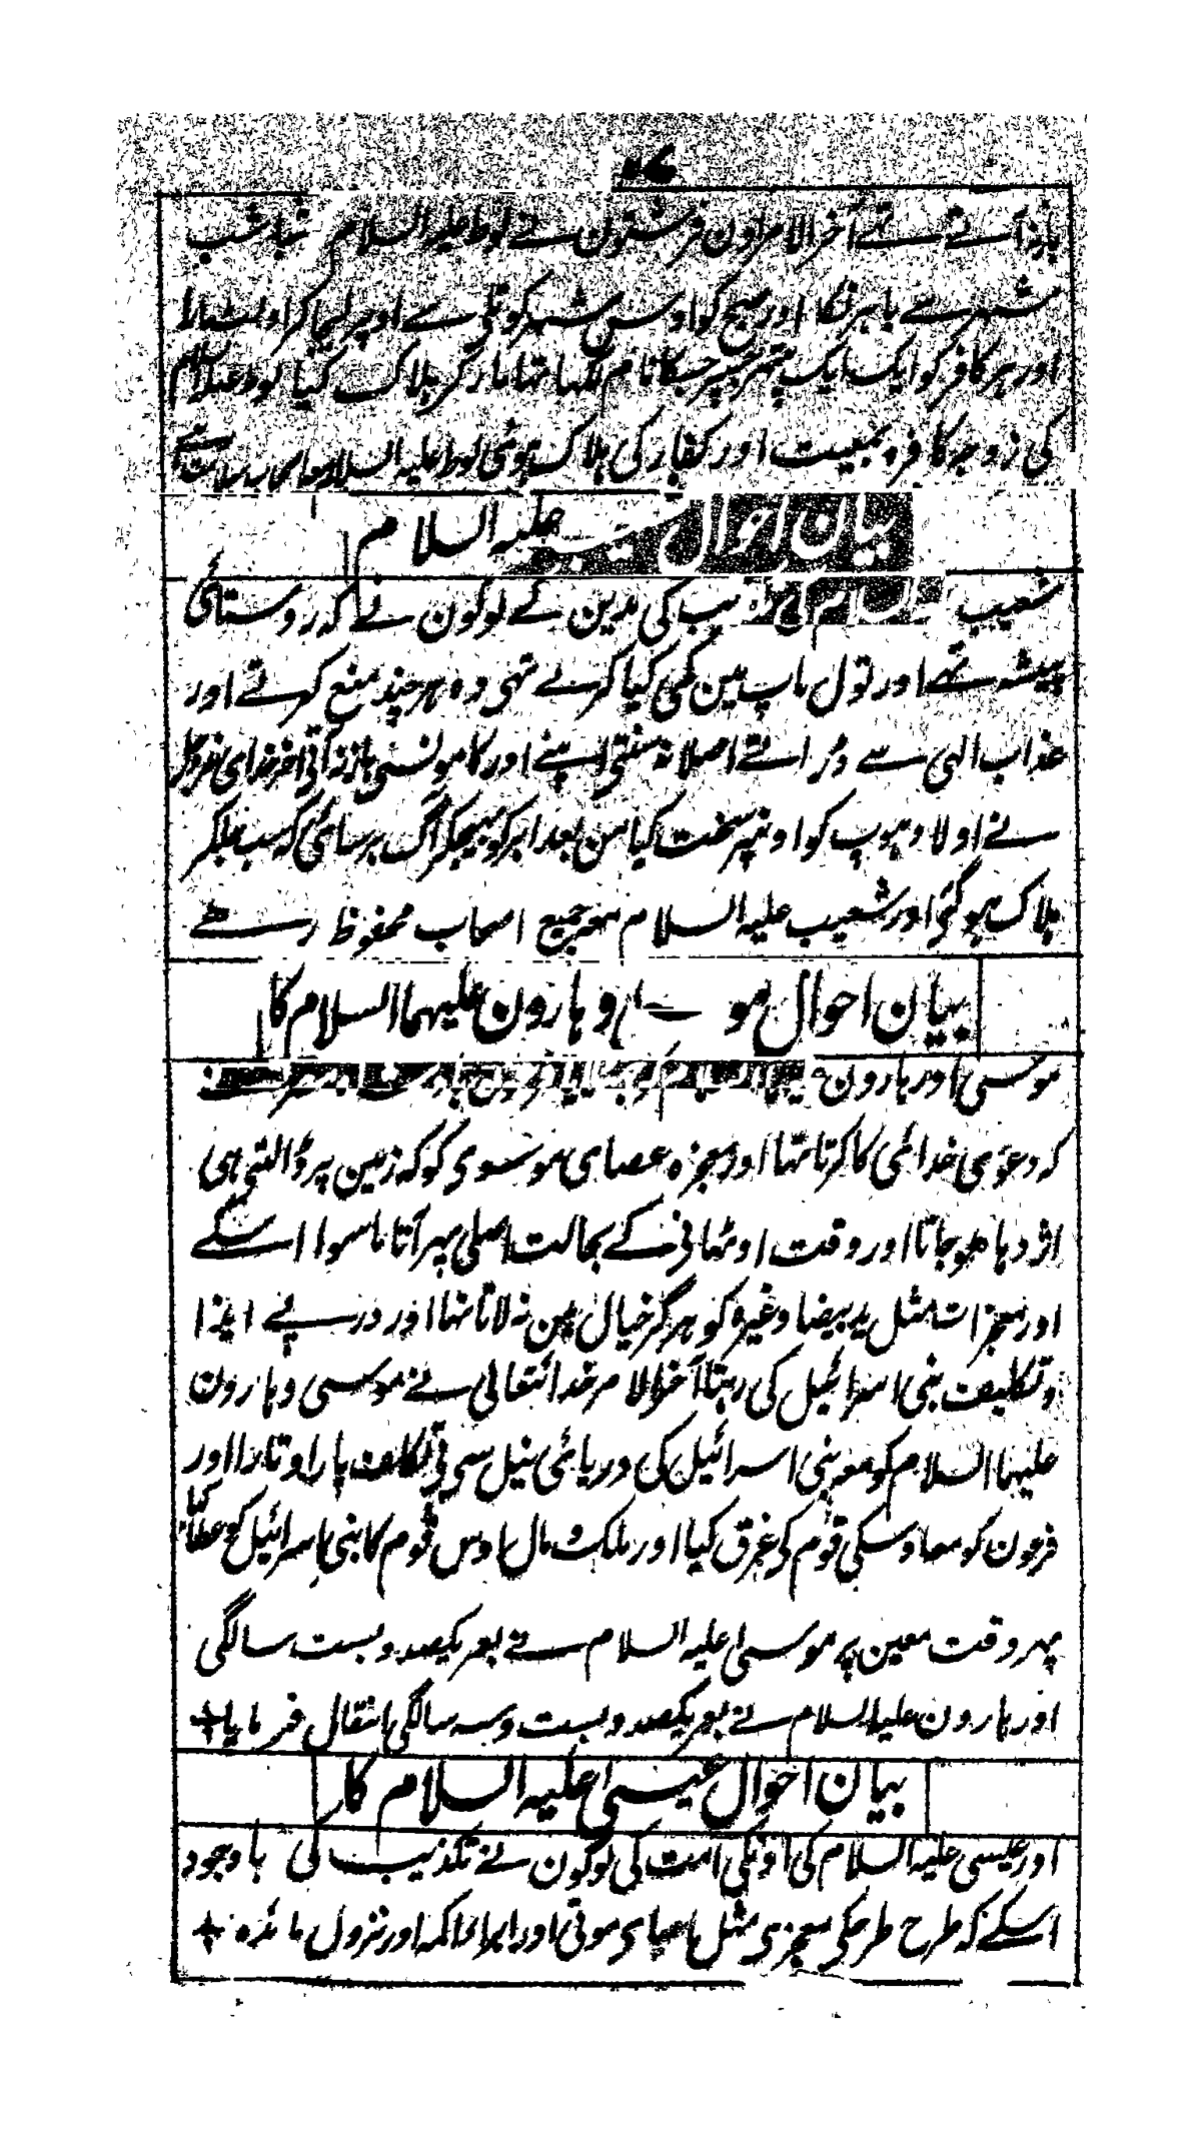 باز نہ آتے تھے آخر الامر اون فرشتون نے لوط علیہ السلام شباشب
شہر سے باہر نکا اور صبح کو اوس شہر کو تلی سے اوپر لیجا کر اولٹ مارا
اور ہر کافر کو ایک ایک پتھر جسپر جسکا نام لکھا تہا مار کر ہلاک کیا لوط علیہ السلام
کی زوجہ کافرہ بمعیت اور کفار کی ہلاک ہوئی لوط علیہ السلام مع اصحاب سلامت رہے
بیان احوال علیہ السلام
شعیب کی مدین کے لوگون نے کہ روستائی
پیشہ تھے اور تول ماپ مین کمی کیا کرتے تہی وہ ہر چند منع کرتے اور
عذاب الہی سے ڈراتے اصلا نہ سنتی اپنے اور کامونسی باز نہ آتی آخر خدای
نے اولا دہوپ کو اونپر سخت کیا من بعد ابر کو بہیجکر آگ برسائی کہ سب جلکر
ہلاک ہو گئی اور شعیب علیہ السلام مع جمیع اصحاب محفوظ رہے
بیان احوال موسی و ہارون علیہما السلام کا
موسی اور ہارون
کہ دعوی خدائی کا کرتا تہا اور معجزہ عصای موسوی کو کہ زمین پر ڈالتی ہی
اژدہا ہو جاتا اور وقت اوٹھانی کے بحالت اصلی پہر آتا ماسوا اسکے
اور معجزات مثل ید بیضا وغیرہ کو ہرگز خیال مین نہ لاتا تہا اور درپے ایذا
و تکلیف بنی اسرائیل کی رہتا آخر الامر خدا تعالی نے موسی و ہارون
علیہما السلام کو مع بنی اسرائیل کی دریائی نیل سی بی تکلف پار اوتارا اور
فرعون کو مع اوسکی قوم کی غرق کیا اور ملک مال اوس قوم کا بنی اسرائیل کو عطا کیا
پہر وقت معین پر موسی علیہ السلام نے بعمر یکصد و بست سالگی
اور ہارون علیہ السلام نے بعمر یکصد و بست و سہ سالگی انتقال فرمایا +
بیان احوال عیسی علیہ السلام کا
اور عیسی علیہ السلام کی اونکی امت کی لوگون نے تکذیب کی باوجود
اسکے کہ طرح طرحکی معجزی مثل احیای موتی اور ابراء اکمہ اور نزول مائدہ +